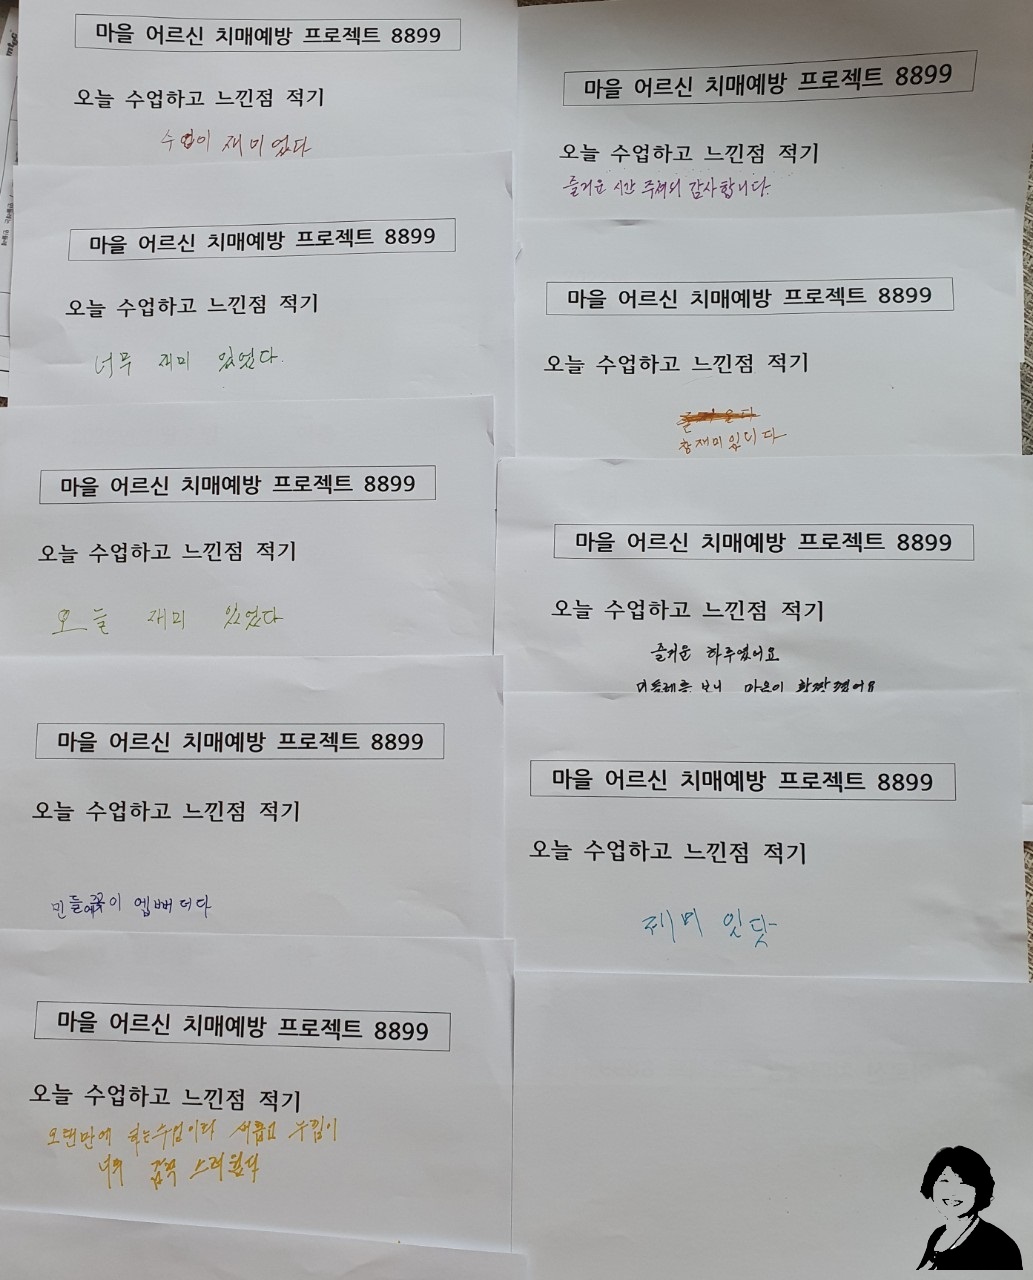 마을 어르신 치매예방 프로젝트 8899
오늘 수업하고 느낀점 적기
수업이 재미었다
마을 어르신 치매예방 프로젝트 8899
오늘 수업하고 느낀점 적기
너무 재미 있었다.
마을 어르신 치매예방 프로젝트 8899
오늘 수업하고 느낀점 적기
오늘 재미 있었다
마을 어르신 치매예방 프로젝트 8899
오늘 수업하고 느낀점 적기
민들예꽃이 엡뻐더다
마을 어르신 치매예방 프로젝트 8899
오늘 수업하고 느낀점 적기
오랜만에 하는수업이라 새롭고 느낌이
너무 스러웠다
마을 어르신 치매예방 프로젝트 8899
오늘 수업하고 느낀점 적기
즐거운 시간 주셔서 감사합니다.
마을 어르신 치매예방 프로젝트 8899
오늘 수업하고 느낀점 적기
참재미있니다
마을 어르신 치매예방 프로젝트 8899
오늘 수업하고 느낀점 적기
즐거운 하루였어요
민들레를 보니 마음이 활짝 폈어요
마을 어르신 치매예방 프로젝트 8899
오늘 수업하고 느낀점 적기
재미 잇닷